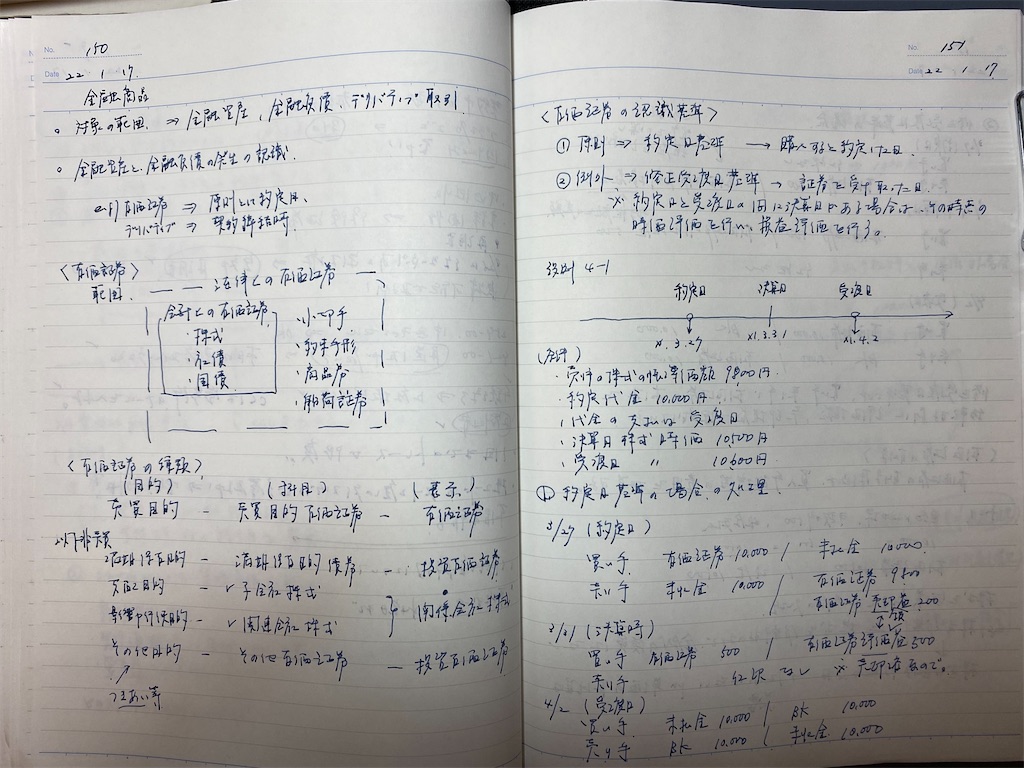 No. 150
Date 22 1 17.
金融商品
。対象の範囲 ⇒ 金融資産、金融負債、デリバティブ取引
。金融資産と金融負債の発生の認識.
ex) 有価証券 ⇒ 原則としは約定日、
デリバティブ ⇒ 契約締結時.
〈有価証券〉
範囲. 法律上の有価証券
会計上の有価証券
・株式
・社債
・国債
・小切手
・約束手形
・商品券
・船荷証券
〈有価証券の種類〉
(目的) (科目) (表示)
売買目的 - 売買目的有価証券 - 有価証券
以外非売買
満期保有目的 - 満期保有目的債券 - 投資有価証券
支配目的 - 子会社株式
影響力行使目的 - 関連会社株式 } 関係会社株式
その他目的 - その他有価証券 - 投資有価証券
つきあい等
No. 151
Date 22 1 17
〈有価証券の認識基準〉
① 原則 ⇒ 約定日基準 → 購入すると約定した日.
② 例外 ⇒ 修正受渡日基準 → 証券を受け取った日.
※ 約定日と受渡日の間に決算日がある場合は、その時点の
時価評価を行い、損益評価を行う。
設例 4-1
約定日 決算日 受渡日
x1.3.27 x1.3.31 x1.4.2
(条件)
・売手の株式の帳簿価額 9,800円.
・約定代金 10,000円
・代金の支払は受渡日
・決算日 株式時価 10500円
・受渡日 〃 10600円
① 約定日基準の場合の処理
3/27 (約定日)
買い手 有価証券 10,000 / 未払金 10,000.
売り手 未収金 10,000 / 有価証券 9800
有価証券売却益 200
3/31 (決算時)
買い手 有価証券 500 / 有価証券評価益 500
売り手 仕訳なし ※ 売却済なので。
4/2 (受渡日)
買い手 未払金 10,000 / BK 10,000
売り手 BK 10,000 / 未収金 10,000